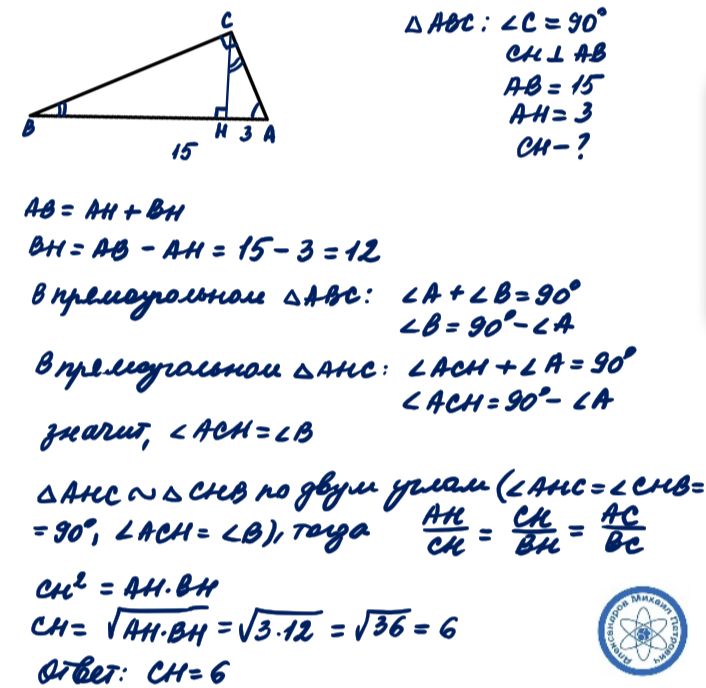 C
B
H 3 A
15
△ABC: ∠C = 90°
CH ⊥ AB
AB = 15
AH = 3
CH - ?
AB = AH + BH
BH = AB - AH = 15 - 3 = 12
В прямоугольном △ABC: ∠A + ∠B = 90°
∠B = 90° - ∠A
В прямоугольном △AHC: ∠ACH + ∠A = 90°
∠ACH = 90° - ∠A
значит, ∠ACH = ∠B
△AHC ~ △CHB по двум углам (∠AHC = ∠CHB =
= 90°, ∠ACH = ∠B), тогда AH/CH = CH/BH = AC/BC
CH² = AH·BH
CH = √AH·BH = √3·12 = √36 = 6
Ответ: CH = 6
Александров Михаил Петрович